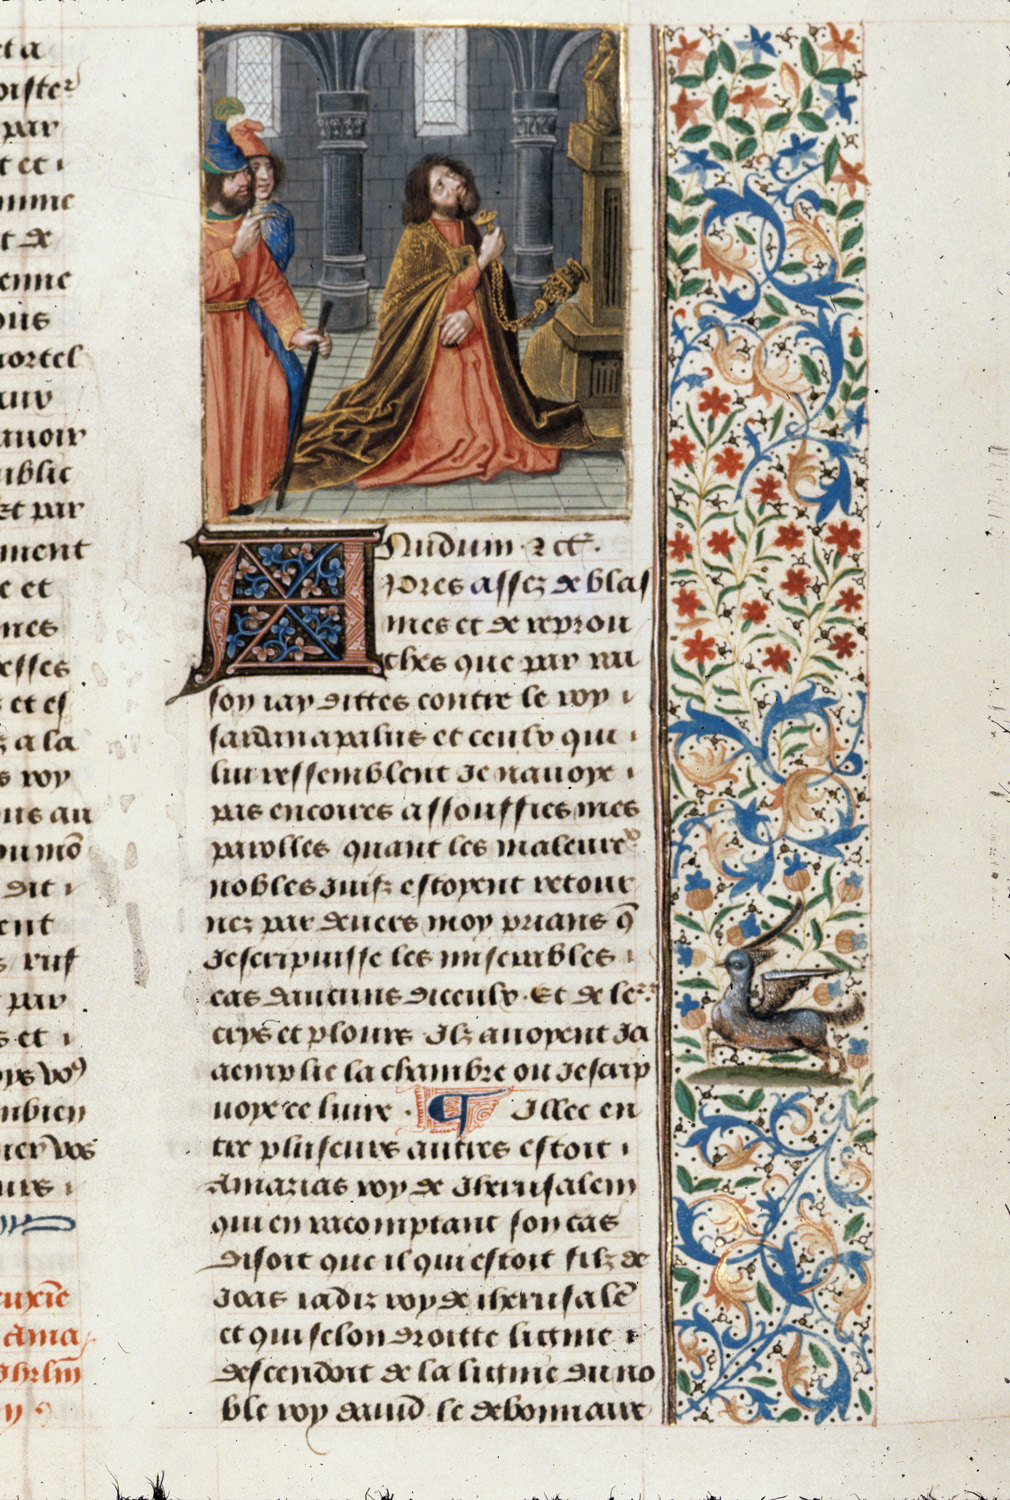 et a
oister
par
t et
omme
t de
enne
ous
mortel
auoir
ublic
Et par
ment
e et
mes
esses
et es
z a la
s roy
ous au
du mo
dit
ent
s ruf
par
s et
oys vo9
mbien
mer vos
urs
euxie
Ama
Jhrlm
Nudum & cet.
Apres assez de blas
mes et de reprou
ches que par rai
son iay dittes contre le roy
sardinapalus et ceulx qui
lui ressemblent Je nauoye
pas encores assouffies mes
parolles quant les maleure
nobles Juifz estoyent retour
nez par deuers moy prians q̃
Jescripuisse les miserables
cas daucuns diceulx. Et de leurs
crys et plours Ilz auoyent Ja
aemplie la chambre ou Jescrip
uoye ce liure. ¶ Illec en
tre pluseurs autres estoit
Amazias roy de Iherusalem
qui en racomptant son cas
Disoit que il qui estoit filz de
Joas iadiz roy de iherusalẽ
et qui selon droitte lignie
descendoit de la lignie du no
ble roy dauid le debonnaire